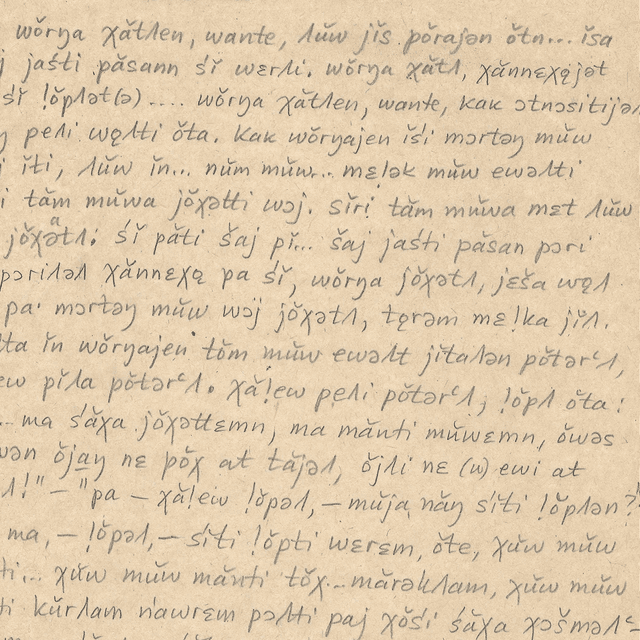 wŏrŋa χătʌen, wante, ʌŭw jĭs pŏrajən ŏtn... ĭsa
jaśti păsann śĭ werʌi. wŏrŋa χătʌ, χănnɛχǫjət
śĭ !ŏpʌət(ə).... wŏrŋa χătʌen, wante, kak ɔtnositijən
peʌi wǫʌti ŏta. kak wŏrŋajen ĭśi mɔrtəŋ mŭw
ĭti, ʌŭw ĭn... num mŭw... mɛ!ək mŭw ewəʌti
i tăm mŭwa jŏχətti wɔj. sĭri tăm mŭwa mɛt ʌŭw
jŏχatʌ. śĭ păti šaj pĭ... šaj jaśti păsan pɔri
pɔriʌəʌ χănnɛχǫ pa śĭ, wŏrŋa jŏχətʌ, jɛša wǫʌ
pa. mɔrtəŋ mŭw wɔj jŏχətʌ, tǫrəm mɛ!ka jĭʌ.
ĭn wŏrŋajen tŏm mŭw ewəʌt jĭtaʌən pŏtərᶜʌ,
pĭʌa pŏtərᶜʌ. χă!ew peʌi pŏtərᶜʌ, !ŏpʌ ŏta:
... ma śăχa jŏχəttɛmn, ma mănti mŭwɛmn, ŏwəs
ŏjaŋ nɛ pŏχ at tăjəʌ, ŏjʌi nɛ (w) ewi at
ʌ!" – "pa – χă!ew !ŏpəʌ, – mŭja năŋ śĭti !ŏpʌən?!
ma, – !ŏpəʌ, – śĭti !ŏpti wɛrɛm, ŏte, χŭw mŭw
ti... χŭw mŭw mănti tŏχ... mărəkʌam, χŭw mŭw
ti kŭrʌam ńawrɛm pɔʌti paj χŏśi śăχa χɔšməʌᶜ–